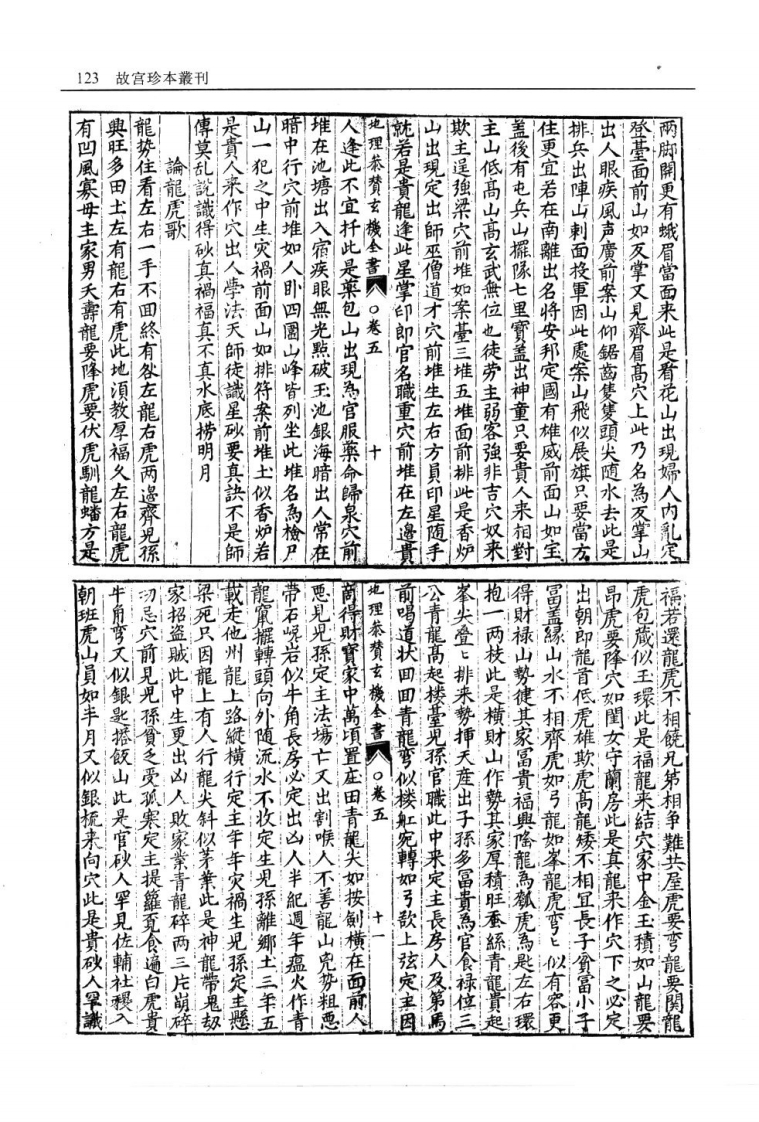 123 故宮珍本叢刊
兩脚開更有蛾眉當面来此是看花山出現婦人内乱定
登臺面前山如反掌又見齊眉髙穴上此乃名為反掌山
出人眼疾風声廣前案山仰鋸齒隻隻頭尖随水去此是
排兵出陣山刺面投軍因此處案山飛似展旗只要當方
住更宜若在南離出名將安邦定國有雄威前面山如宝
盖後有屯兵山擺隊七里寶盖出神童只要貴人来相對
主山低髙山髙玄武無位也徒劳主弱客強非吉穴奴来
欺主逞強梁穴前堆如案臺三堆五堆面前排此是香炉
山出現定出師巫僧道才穴前堆生左右方員印星随手
就若是貴龍逢此星掌印即官名職重穴前堆在左邉貴
地理叅賛玄機全書 ○卷五 十
人逢此不宜扦此是藥包山出現為官服藥命歸泉穴前
堆在池塘出入宿疾眼無光點破玉池銀海暗出人常在
暗中行穴前堆如人卧四圍山峰皆列坐此堆名為檢尸
山一犯之中生灾禍前面山如排符案前堆土似香炉若
是貴人来作穴出人學法天師徒識星砂要真訣不是師
傳莫乱説識得砂真禍福真不真水底撈明月
論龍虎歌
龍势住看左右一手不回終有咎左龍右虎两邉齊児孫
興旺多田土左有龍右有虎此地湏教厚福久左右龍虎
有凹風寡母主家男夭壽龍要降虎要伏虎馴龍蟠方是
福若還龍虎不相饒兄第相争難共屋虎要彎龍要関龍
虎包蔵似玉環此是福龍来結穴家中金玉積如山龍要
昻虎要降穴如閨女守蘭房此是真龍来作穴下之必定
出朝郎龍首低虎雄欺虎髙龍矮不相宜長子貧冨小子
冨盖縁山水不相齊虎如弓龍如峯龍虎彎ヒ似有容更
得財禄山勢健其家冨貴福興隆龍為瓢虎為匙左右環
抱一两枝此是横財山作勢其家厚積旺蚕絲青龍貴起
峯尖叠ヒ排来勢揷天産出子孫多冨貴為官食禄位三
公青龍髙起楼䑓児孫官職此中来定主長房人及第馬
前喝道状囬囬青龍彎似楼舡宛轉如弓欲上弦定主因
地理叅賛玄機全書 ○卷五 十一
商得財寳家中萬頃置庄田青龍尖如按劍横在面前人
悪見児孫定主法塲亡又出割喉人不善龍山兇勢粗悪
帶石岘岩似牛角長房必定出凶人半紀週年瘟火作青
龍竄擺轉頭向外随流水不收定生児孫離鄉土三年五
載走他州龍上路縱横行定主年年灾禍生児孫定主懸
梁死只因龍上有人行龍尖斜似茅葉此是神龍帶鬼劫
家招盗賊此中生更出凶人敗家業青龍碎两三片崩碎
切忌穴前見児孫貧乏受孤寒定主提籮覔食遍白虎貴
牛角彎又似銀匙搭飯山此是官砂人罕見佐輔社稷入
朝班虎山員如半月又似銀梳来向穴此是貴砂人罕識